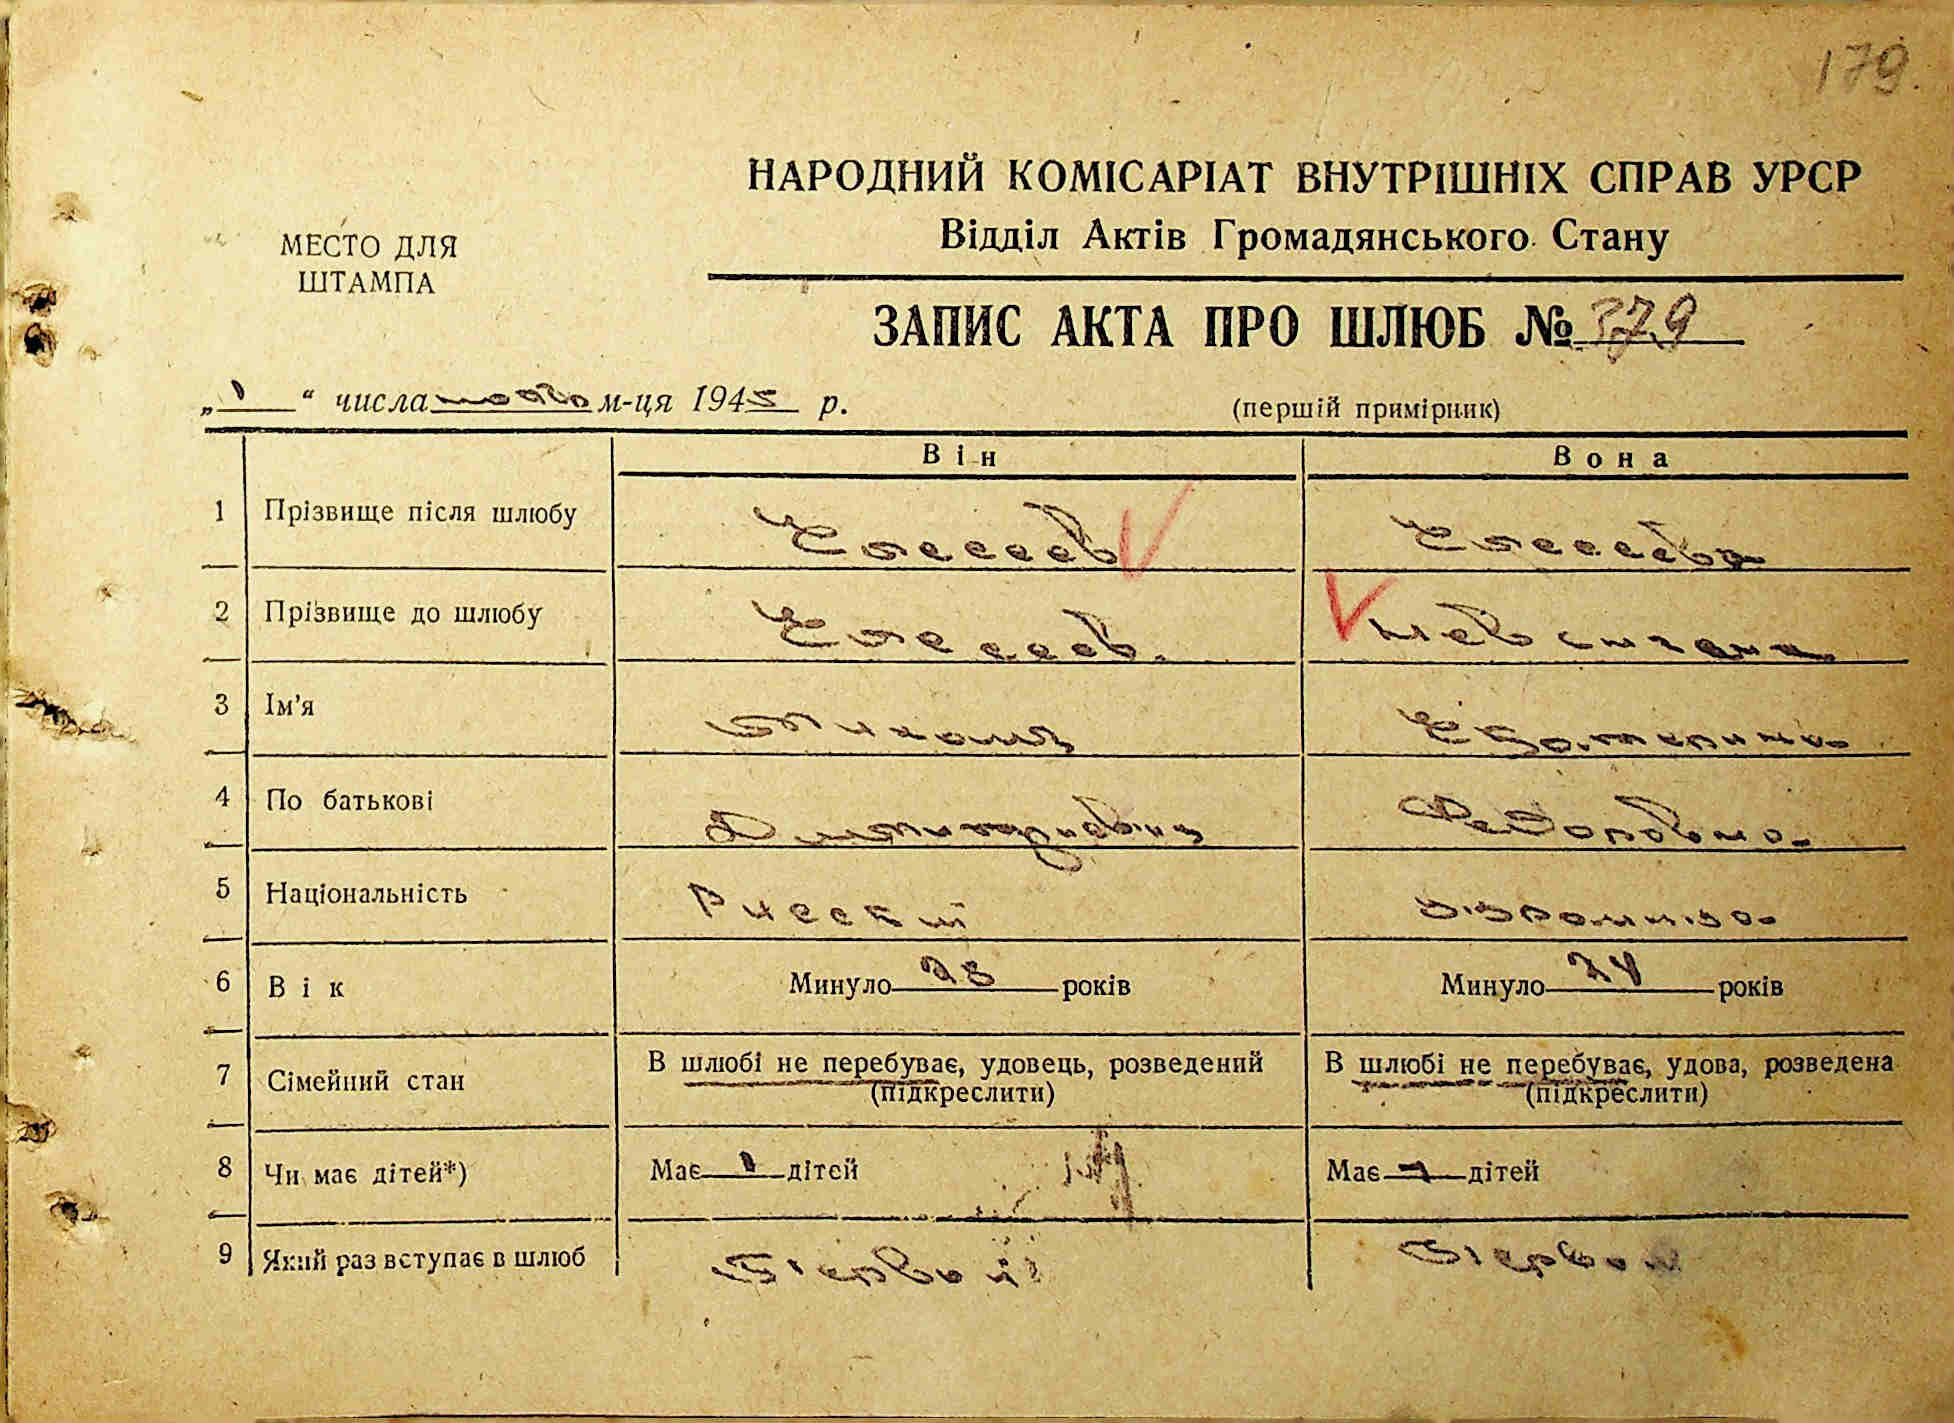 179.
НАРОДНИЙ КОМІСАРІАТ ВНУТРІШНІХ СПРАВ УРСР
Відділ Актів Громадянського Стану
МЕСТО ДЛЯ
ШТАМПА
ЗАПИС АКТА ПРО ШЛЮБ № 379
„ 1 “ числа м-ця 1945 р.
(першій примірник)
Він Вона
1 Прізвище після шлюбу Елесеев Елесеева
2 Прізвище до шлюбу Елесеев.
3 Ім’я Екатерина
4 По батькові Дмитриевич Федоровна
5 Національність Русский
6 Вік Минуло 28 років Минуло 24 років
7 Сімейний стан В шлюбі не перебуває, удовець, розведений В шлюбі не перебуває, удова, розведена
(підкреслити) (підкреслити)
8 Чи має дітей*) Має дітей Має дітей
9 Який раз вступає в шлюб Первый Первый